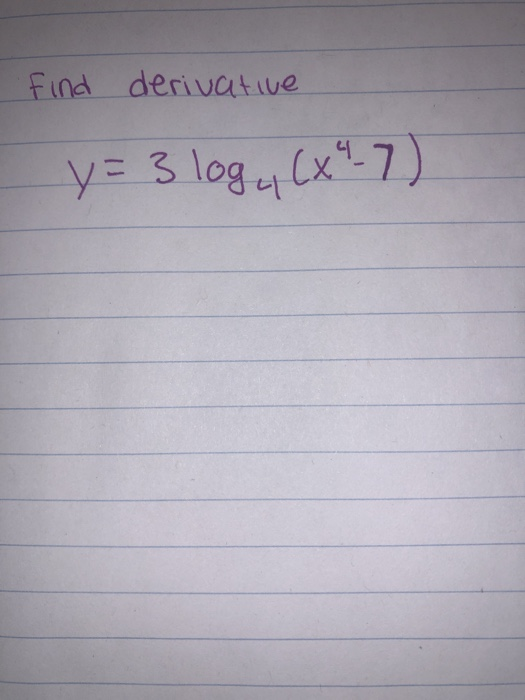 Find derivative
y = 3 log₄ (x⁴-7)